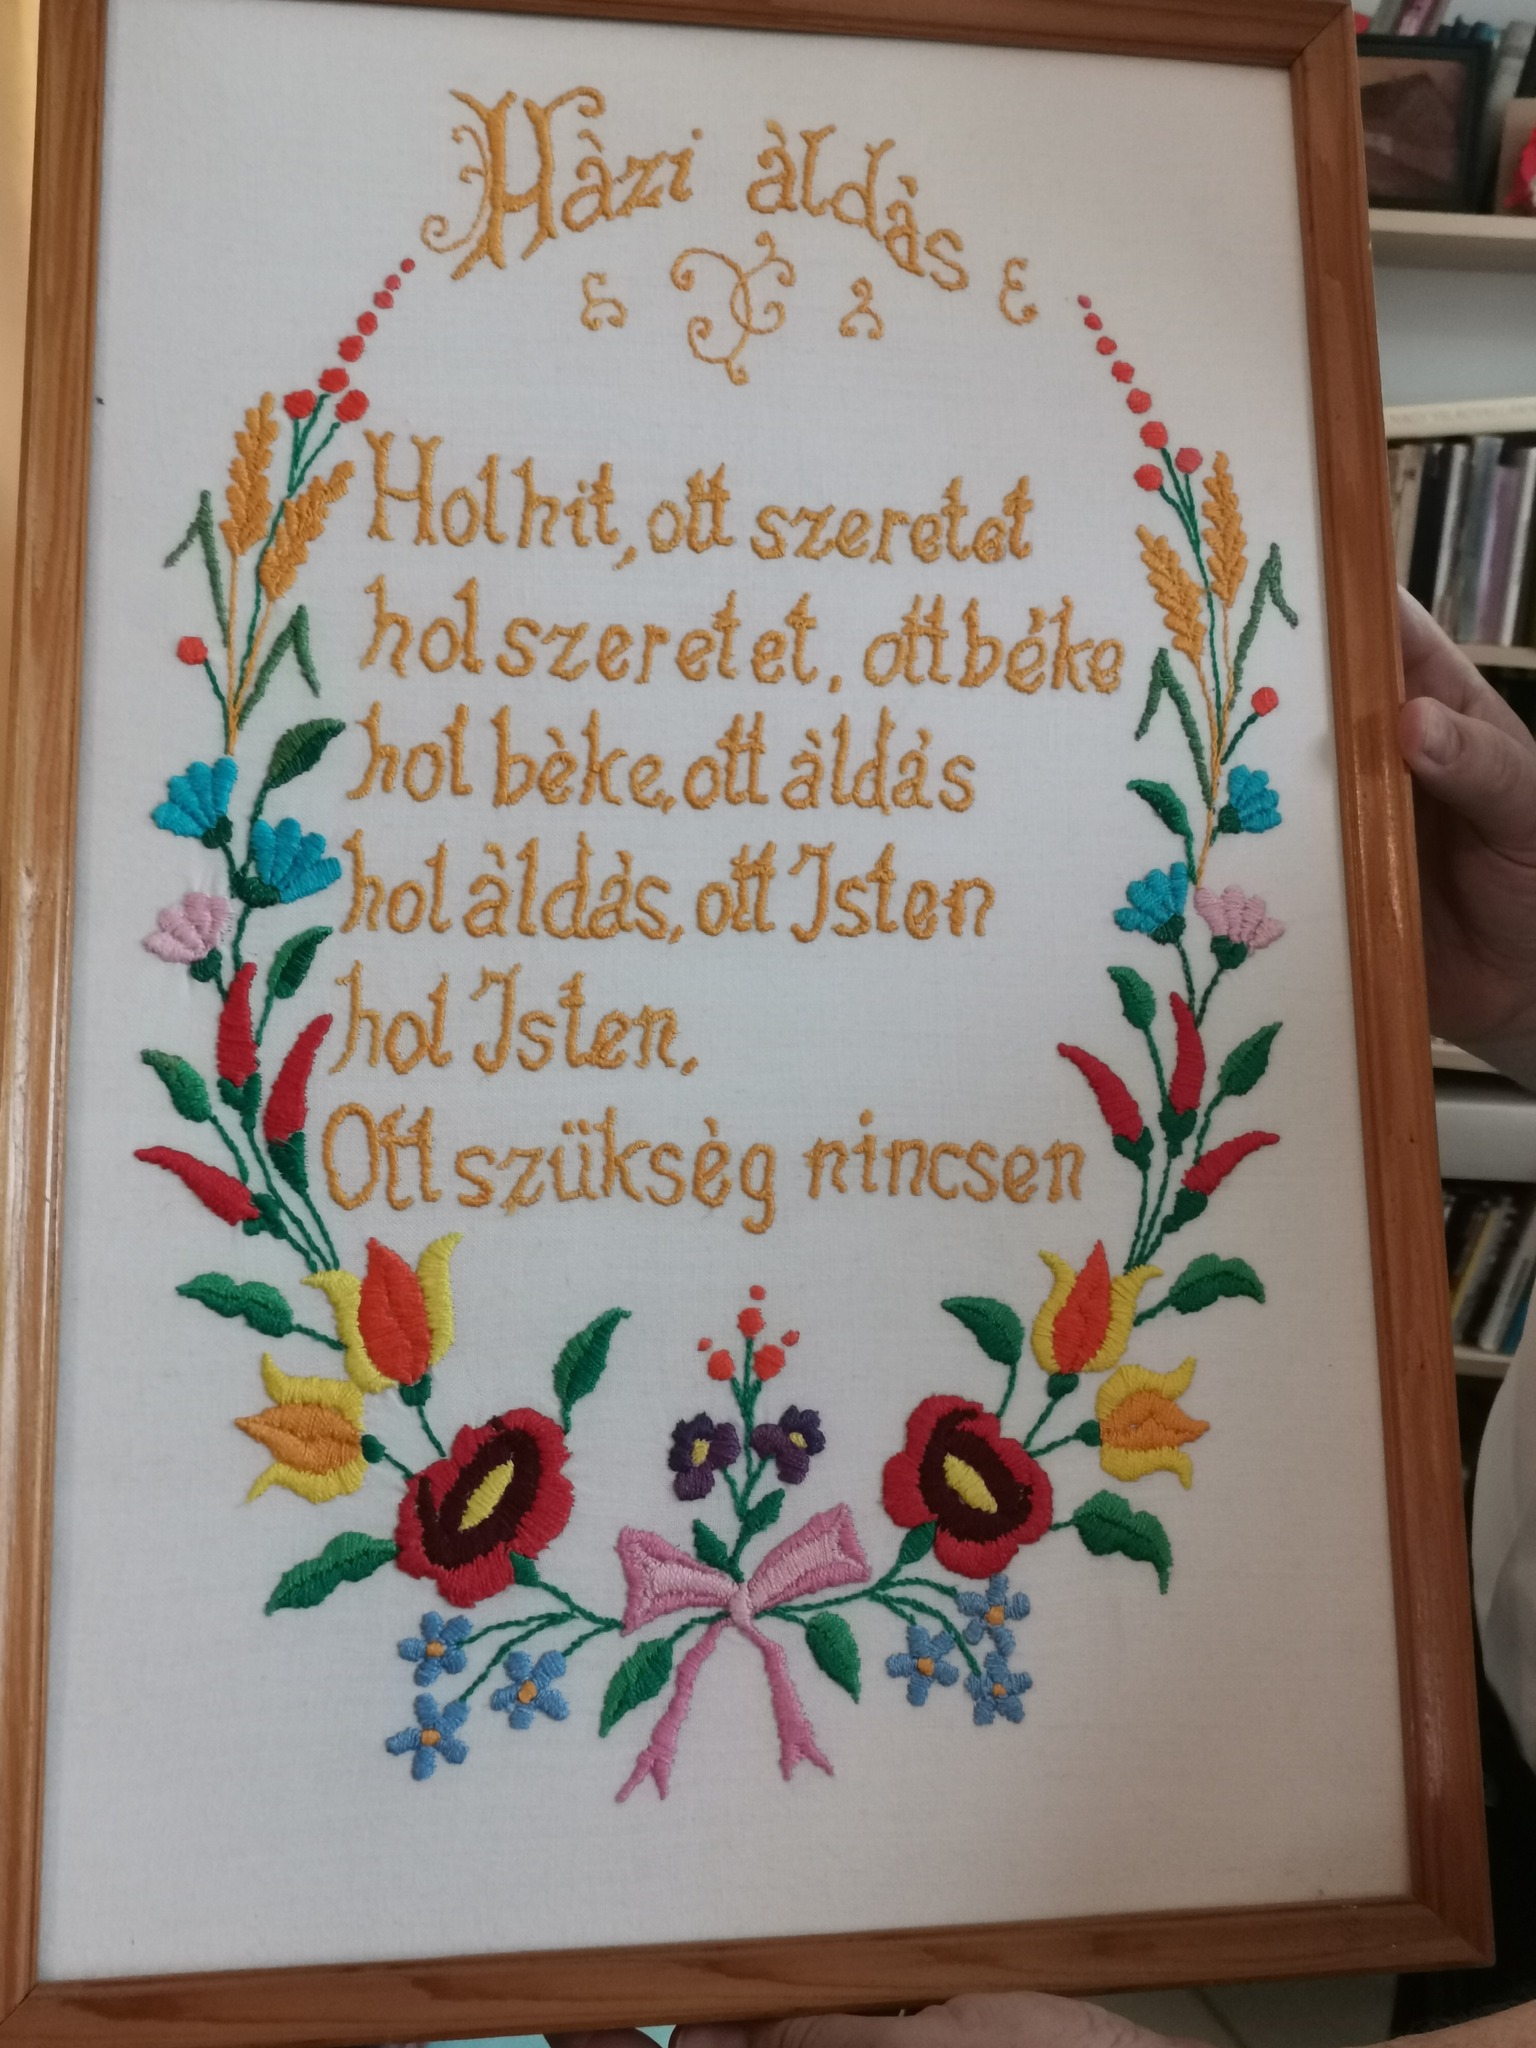 Hàzi àldàs
Hol hit, ott szeretet
hol szeretet, ott béke
hol bèke, ott àldás
hol àldás, ott Isten
hol Isten,
Ott szüksèg nincsen